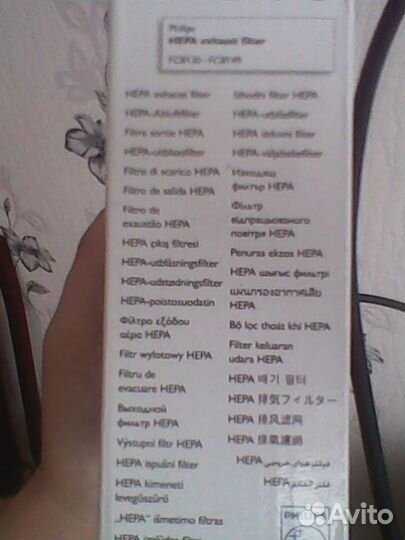 Philips
HEPA exhaust filter
HEPA exhaust filter
HEPA-Abluftfilter
Filtre sortie HEPA
HEPA-uitblaasfilter
Filtro di scarico HEPA
Filtro de salida HEPA
Filtro de
exaustão HEPA
HEPA çıkış filtresi
HEPA-utblåsningsfilter
HEPA-udstødningsfilter
HEPA-poistosuodatin
Φίλτρο εξόδου
αέρα HEPA
Filtr wylotowy HEPA
Filtru de
evacuare HEPA
Выходной
фильтр HEPA
Výstupní filtr HEPA
HEPA ispušni filter
HEPA kimeneti
levegőszűrő
„HEPA“ išmetimo filtras
Izhodni filter HEPA
HEPA izduvni filter
HEPA
Изходящ
филтър HEPA
Фільтр
відпрацьованого
повітря HEPA
Penuras ekzos HEPA
HEPA шығыс фильтрі
แผ่นกรองอากาศเสีย
HEPA
Bộ lọc thoát khí HEPA
Filter keluaran
udara HEPA
HEPA 배기 필터
HEPA 排気フィルター
HEPA 排风滤网
HEPA 排氣濾網
فیلتر هوای خروجی HEPA
فلتر العادم HEPA
Avito